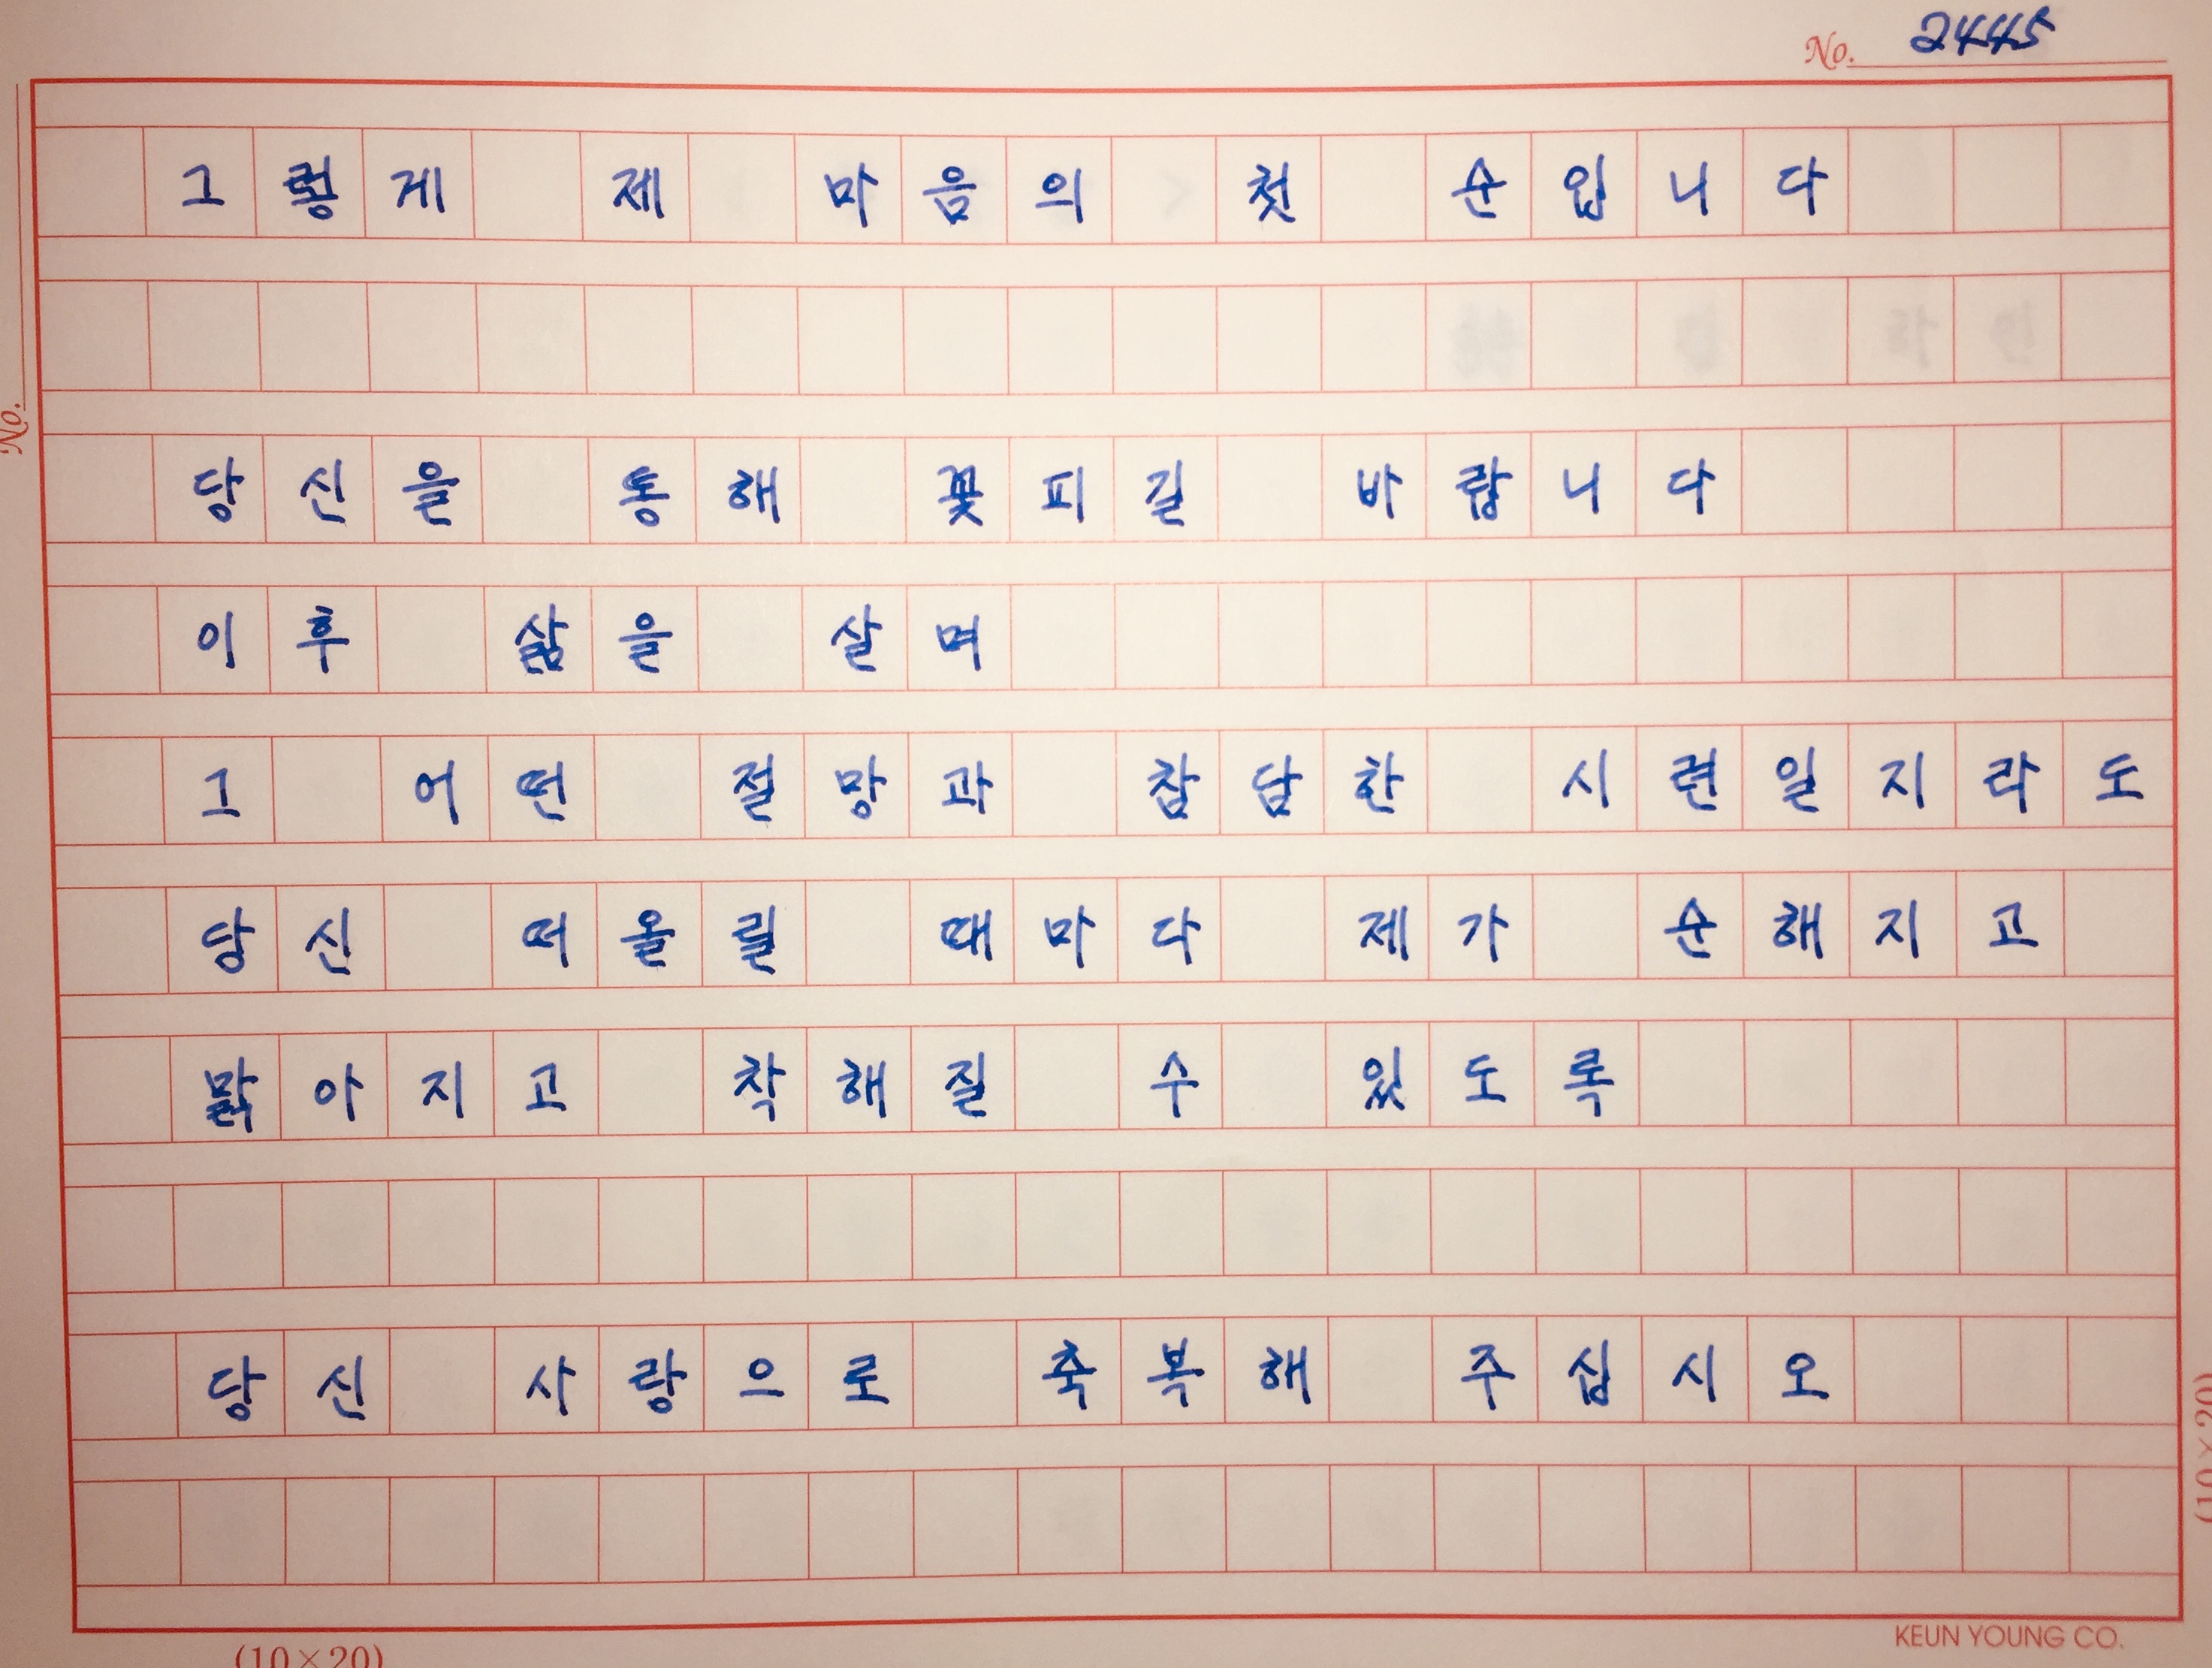 No. 2445
그렇게 제 마음의 첫 순입니다
당신을 통해 꽃피길 바랍니다
No.
이후 삶을 살며
그 어떤 절망과 참담한 시련일지라도
당신 떠올릴 때마다 제가 순해지고
맑아지고 착해질 수 있도록
당신 사랑으로 축복해 주십시오
(10×20)
KEUN YOUNG CO.
(10×20)